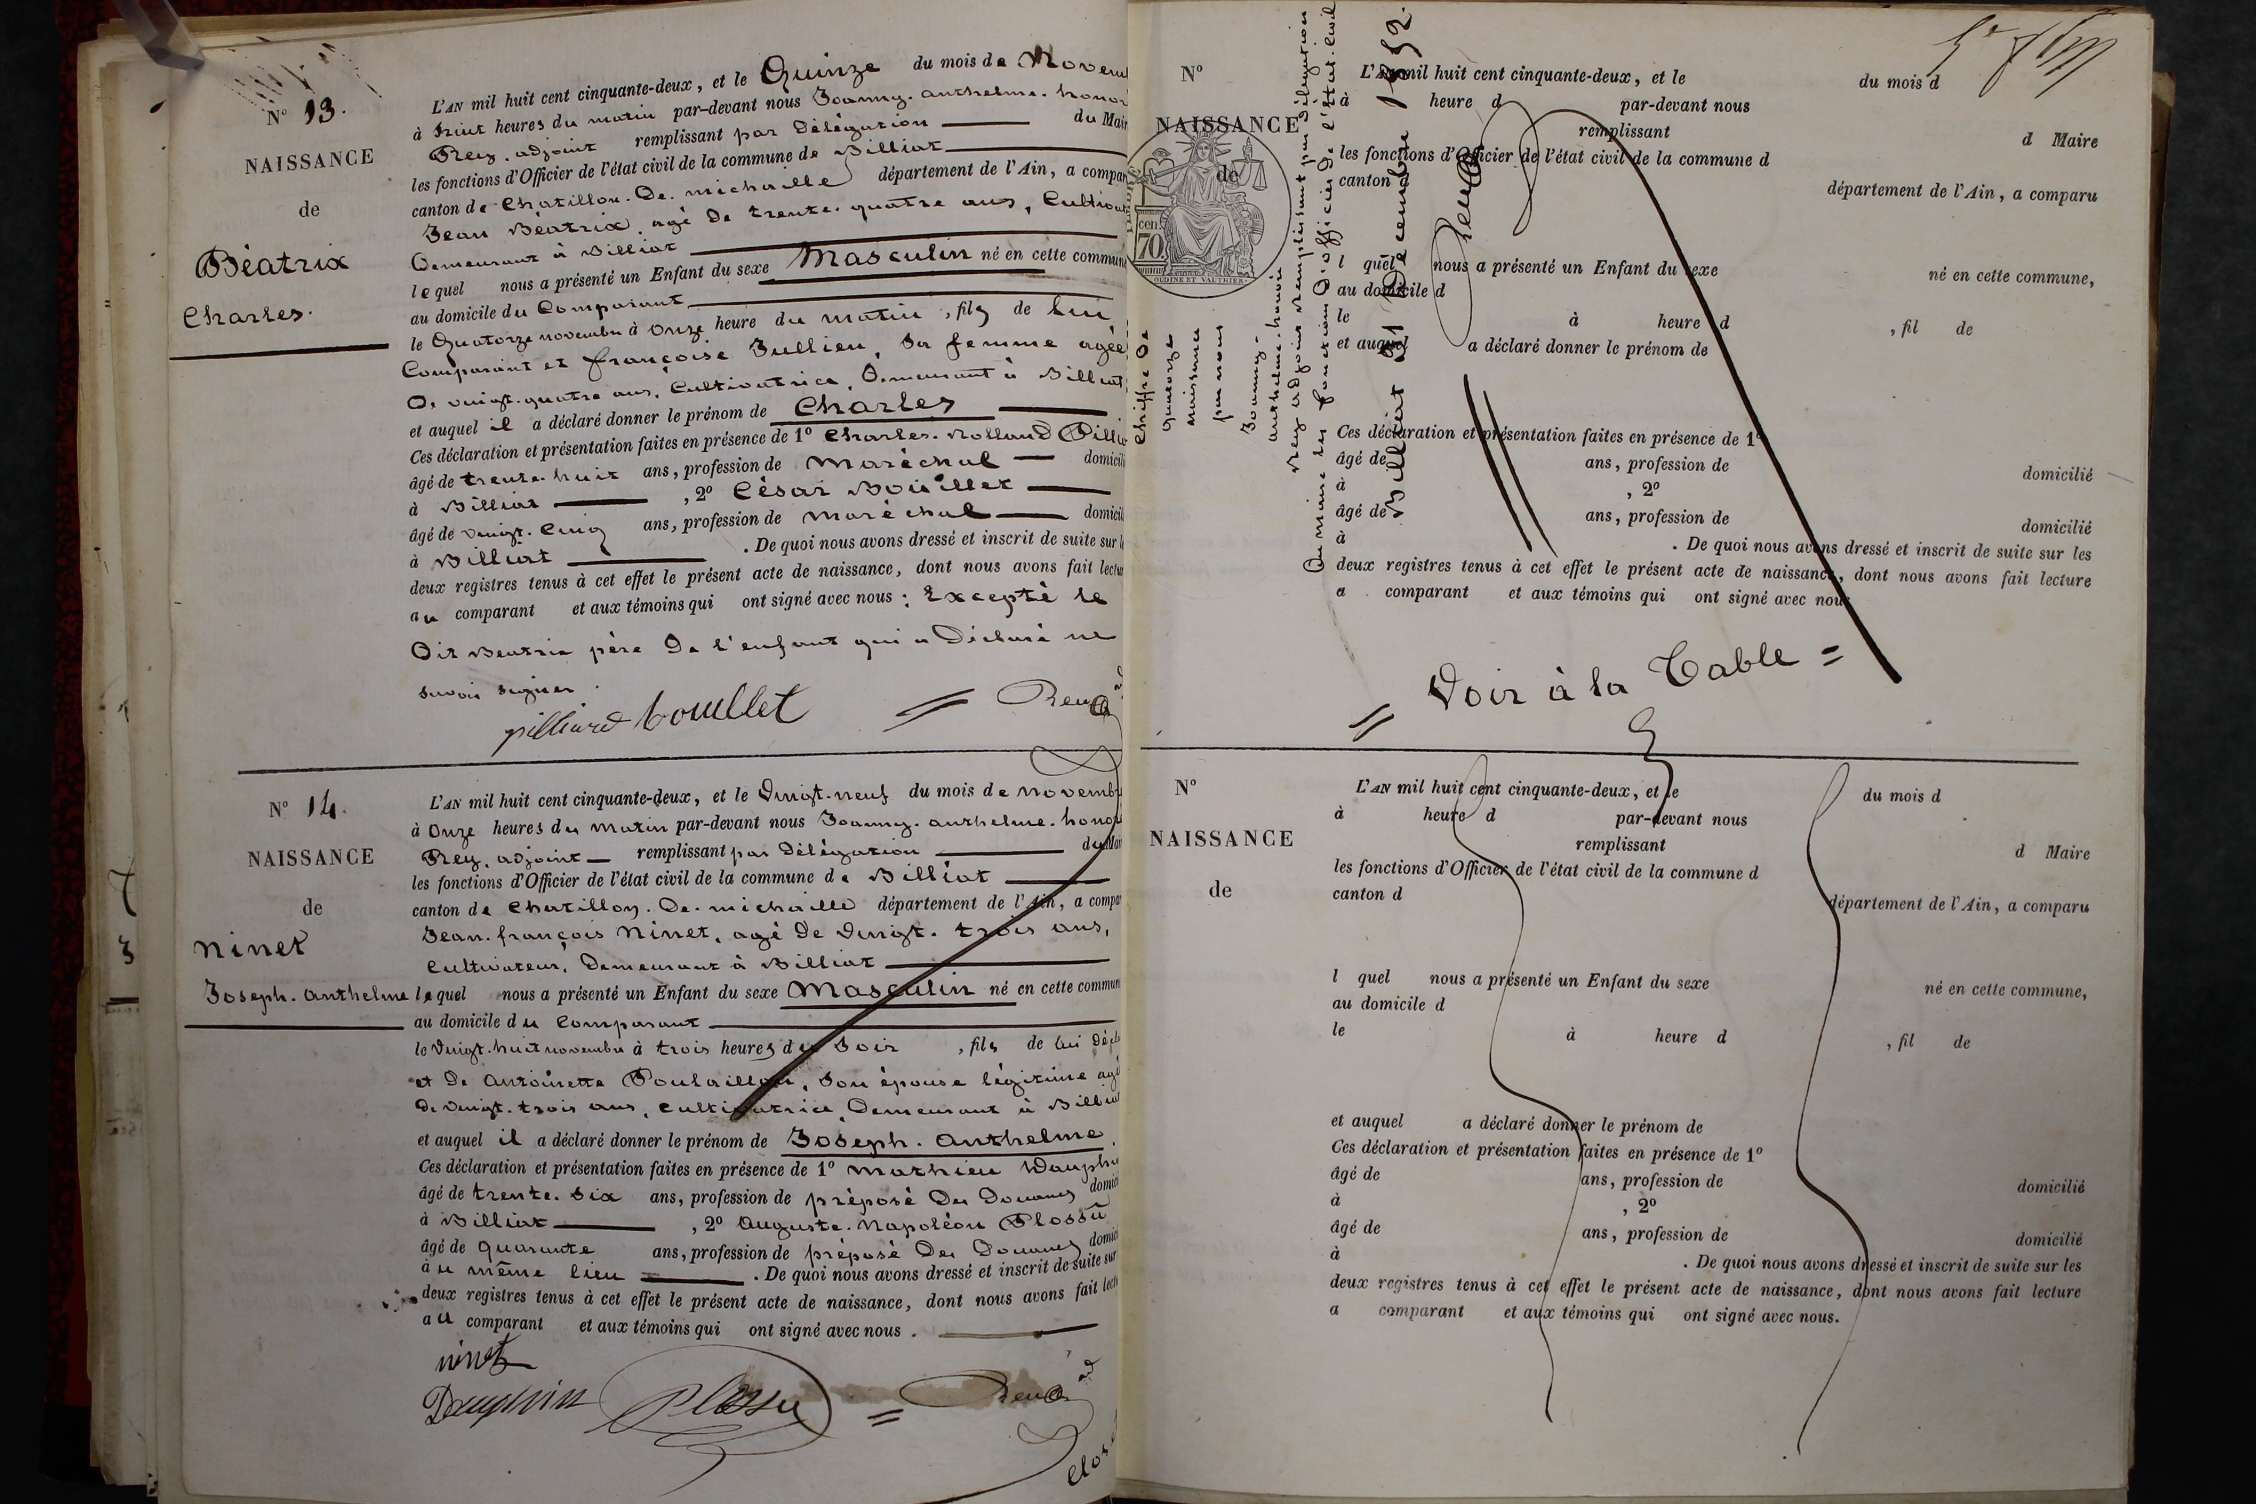 N° 13.
NAISSANCE
de
Béatrix
Charles.
L'AN mil huit cent cinquante-deux, et le Quinze du mois de Novem
à huit heures du matin par-devant nous Joanny. anthelme. honor
Rey. adjoint remplissant par Délégation du Mair
les fonctions d'Officier de l'état civil de la commune de Billiat
canton de Chatillon. De. michaille département de l'Ain, a compar
Jean Béatrix, agé de trente. quatre ans, Cultivat
Demeurant à Billiat
lequel nous a présenté un Enfant du sexe Masculin né en cette commune
au domicile du Comparant
le Quatorze novembre à Onze heure du matin, fils de lui
Comparant et françoise Jullien, sa femme agée
De vingt. quatre ans, Cultivatrice, Demeurant à Billiat
et auquel il a déclaré donner le prénom de Charles
Ces déclaration et présentation faites en présence de 1° Charles. Rolland Pilli
âgé de trente. huit ans, profession de Maréchal domicili
à Billiat, 2° César Bouillet
âgé de vingt. Cinq ans, profession de Maréchal domicil
à Billiat. De quoi nous avons dressé et inscrit de suite sur l
deux registres tenus à cet effet le présent acte de naissance, dont nous avons fait lectu
au comparant et aux témoins qui ont signé avec nous : Excepté le
Dit Beatrix père De l'enfant qui a Déclaré ne
savoir signer.
pilliard bouillet = Rey
N° 14.
NAISSANCE
de
Ninet
Joseph. anthelme
L'AN mil huit cent cinquante-deux, et le Vingt. neuf du mois de novemb
à Onze heures du Matin par-devant nous Joanny. anthelme. hono
Rey, adjoint remplissant par Délégation du Mai
les fonctions d'Officier de l'état civil de la commune de Billiat
canton de Chatillon. De. michaille département de l'Ain, a compa
Jean. françois Ninet, agé de vingt. trois ans,
Cultivateur, Demeurant à Billiat
lequel nous a présenté un Enfant du sexe Masculin né en cette commun
au domicile du Comparant
le Vingt. huit novembre à trois heures du Soir, fils de lui Décl
et De Antoinette Poulaillon, son épouse légitime agé
De vingt. trois ans, cultivatrice, Demeurant à Billiat
et auquel il a déclaré donner le prénom de Joseph. Anthelme.
Ces déclaration et présentation faites en présence de 1° Mathieu Dauphi
âgé de trente. six ans, profession de préposé Des Douanes domici
à Billiat, 2° Auguste. Napoléon Plossu
âgé de quarante ans, profession de préposé Des Douanes domici
au même lieu. De quoi nous avons dressé et inscrit de suite sur
deux registres tenus à cet effet le présent acte de naissance, dont nous avons fait lect
au comparant et aux témoins qui ont signé avec nous.
ninet
Dauphin Plossu = Rey
Clos
chiffre de
quatorze
naissances
par nous
Joanny.
anthelme. honoré
Rey adjoint remplissant par Délégation
Du Maire les fonctions D'officier De l'état civil
Billiat 31 Décembre 1852.
Rey
cen.
70
OUDINE ET VAUTHIER
N°
NAISSANCE
de
L'AN mil huit cent cinquante-deux, et le du mois d
à heure d par-devant nous
remplissant d Maire
les fonctions d'Officier de l'état civil de la commune d
canton d département de l'Ain, a comparu
l quel nous a présenté un Enfant du sexe né en cette commune,
au domicile d
le à heure d, fil de
et auquel a déclaré donner le prénom de
Ces déclaration et présentation faites en présence de 1°
âgé de ans, profession de domicilié
à, 2°
âgé de ans, profession de domicilié
à. De quoi nous avons dressé et inscrit de suite sur les
deux registres tenus à cet effet le présent acte de naissance, dont nous avons fait lecture
a comparant et aux témoins qui ont signé avec nous
= Voir à la Table =
N°
NAISSANCE
de
L'AN mil huit cent cinquante-deux, et le du mois d
à heure d par-devant nous
remplissant d Maire
les fonctions d'Officier de l'état civil de la commune d
canton d département de l'Ain, a comparu
l quel nous a présenté un Enfant du sexe né en cette commune,
au domicile d
le à heure d, fil de
et auquel a déclaré donner le prénom de
Ces déclaration et présentation faites en présence de 1°
âgé de ans, profession de domicilié
à, 2°
âgé de ans, profession de domicilié
à. De quoi nous avons dressé et inscrit de suite sur les
deux registres tenus à cet effet le présent acte de naissance, dont nous avons fait lecture
a comparant et aux témoins qui ont signé avec nous.